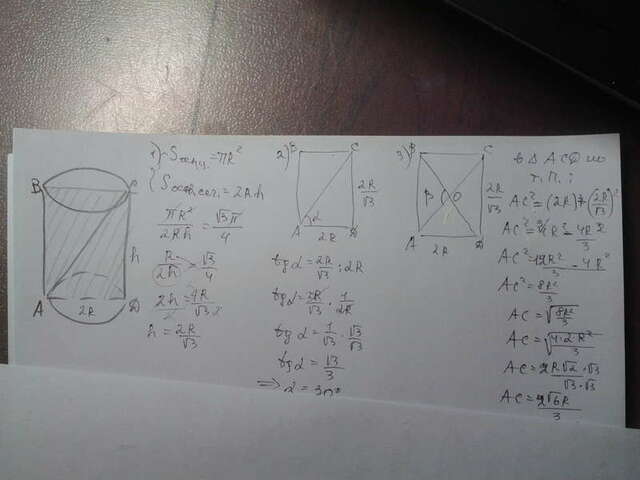 1) Sосн.ц. = πR²
Sосев.сеч. = 2Rh
πR² / 2Rh = √3π / 4
R / 2h = √3 / 4
2h = 4R / √3
h = 2R / √3
B C
h
A 2R D
2) B C
2R / √3
α
A 2R D
tg α = 2R / √3 : 2R
tg α = 2R / √3 · 1 / 2R
tg α = 1 / √3 · √3 / √3
tg α = √3 / 3
=> α = 30°
3) B C
β O
2R / √3
A 2R D
в Δ ACD по
т. П.:
AC² = (2R)² (2R / √3)²
AC² = 4R² − 4R² / 3
AC² = 12R² − 4R² / 3
AC² = 8R² / 3
AC = √8R² / 3
AC = √4·2·R² / 3
AC = 2R√2 · √3 / √3 · √3
AC = 2√6R / 3